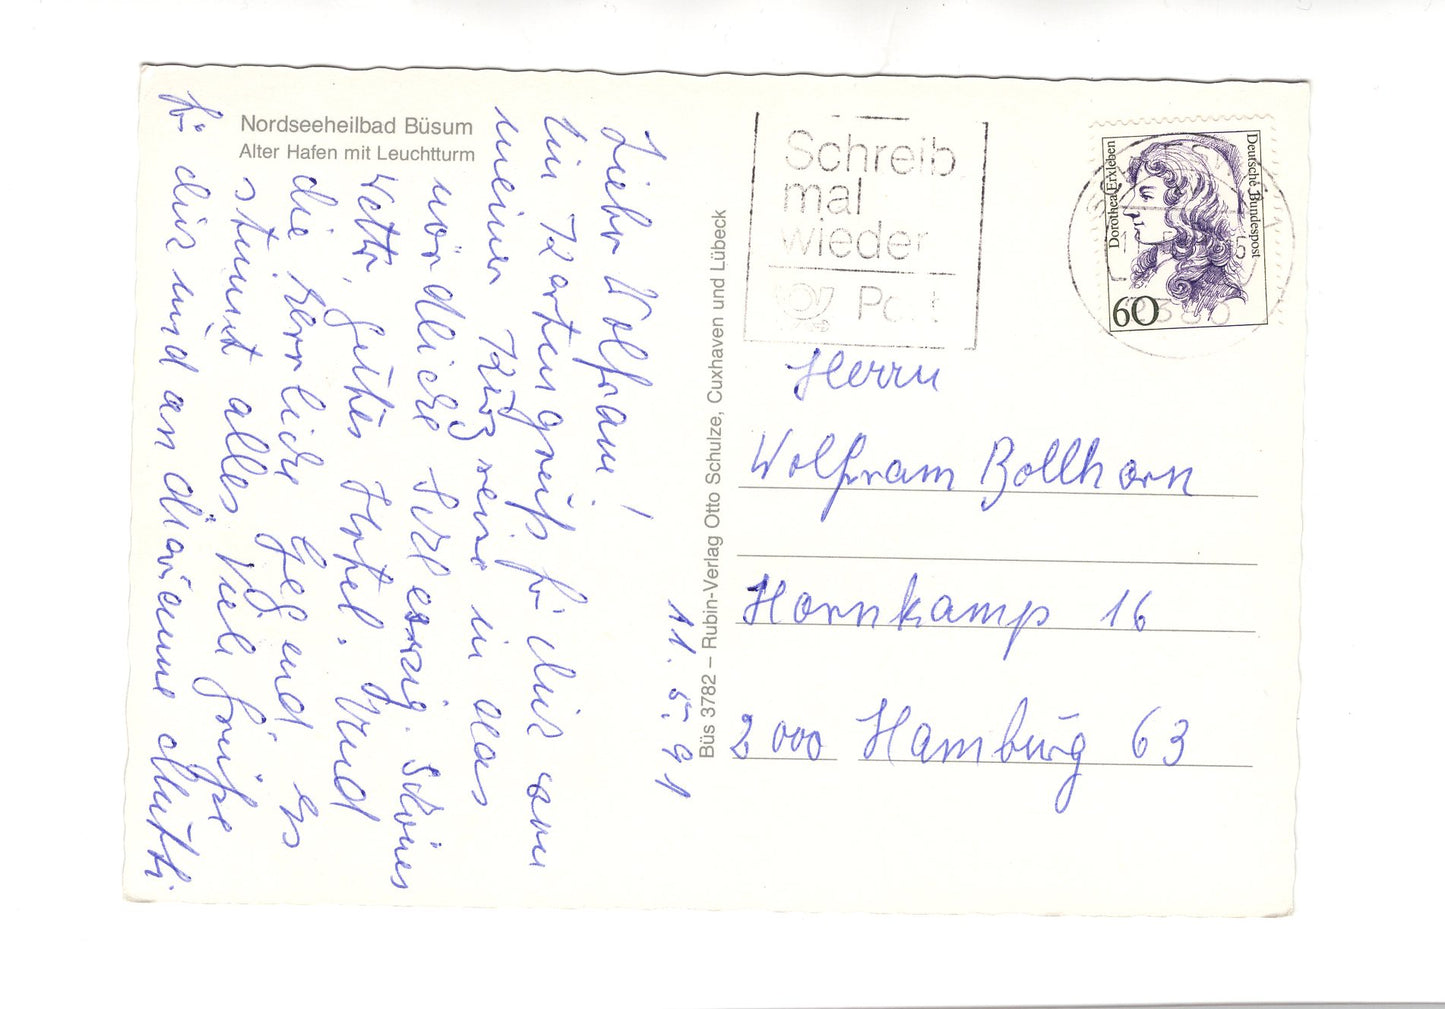 Nordseeheilbad Büsum
Alter Hafen mit Leuchtturm
11.5.91
Lieber Wolfram!
Ein Kartengruß für dich von
meiner Kurzreise in das
nördliche Schleswig. Schönes
Wetter, gutes Hotel. Und
die herrliche Gegend es
stimmt alles. Viele Grüße
für dich und an Marianne Mutti
Büs 3782 – Rubin-Verlag Otto Schulze, Cuxhaven und Lübeck
Schreib
mal
wieder
Post
Dorothea Erxleben
Deutsche Bundespost
60
Herrn
Wolfram Bollhorn
Hornkamp 16
2000 Hamburg 63